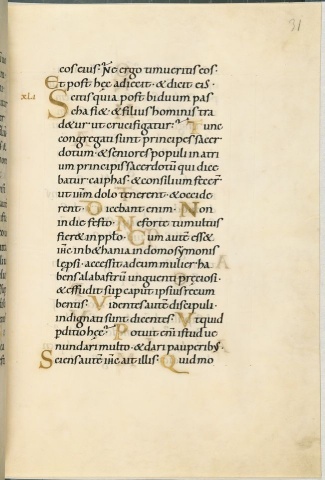 31
eos eius. Ne ergo timueritis eos.
Et post hęc adiecit. & dicit eis.
XLI Scitis quia post biduum pas
cha fi&. & filius hominis tra
d&ur ut crucifigatur. Tunc
congregati sunt principes sacer
dotum. & seniores populi in atri
um principis sacerdotũ qui dice
batur caiphas. & consilium fecer̃
ut iħm dolo tenerent. & occide
rent. Dicebant enim. Non
in die festo. Ne forte tumultus
fier& in pplo. Cum autẽ ess&
iħc in b&hania in domo symonis
lep̃si. accessit ad eum mulier ha
bens alabastrũ unguenti preciosi.
& effudit sup caput ipsius recum
bentis. Videntes autẽ discipuli.
indignati sunt dicentes. Vt quid
pditio hęc. Potuit eni istud ue
nundari multo. & dari pauperib;.
Sciens autẽ iħc ait illis. Quid mo